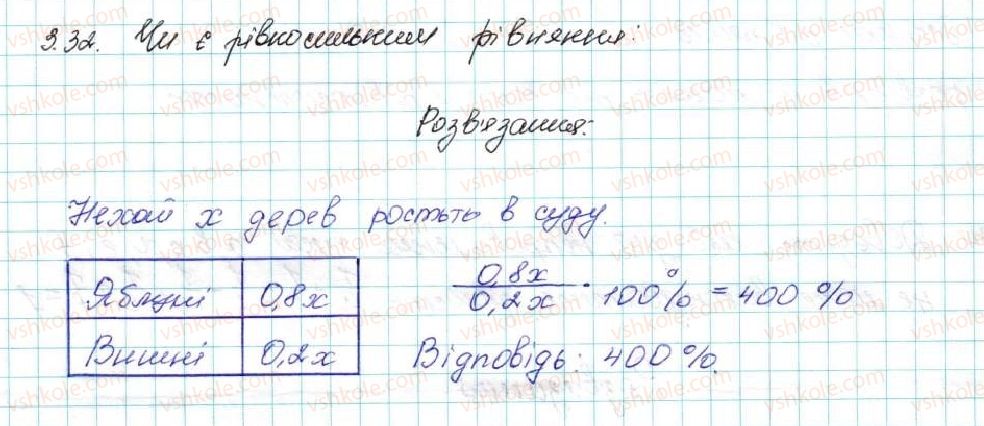 9.32. Чи є рівносильним рівняння:
Розв'язання:
Нехай x дерев ростьть в суду.
Яблуні 0,8x
Вишні 0,2x
0,8x / 0,2x · 100% = 400 %
Відповідь: 400%.
vshkole.com